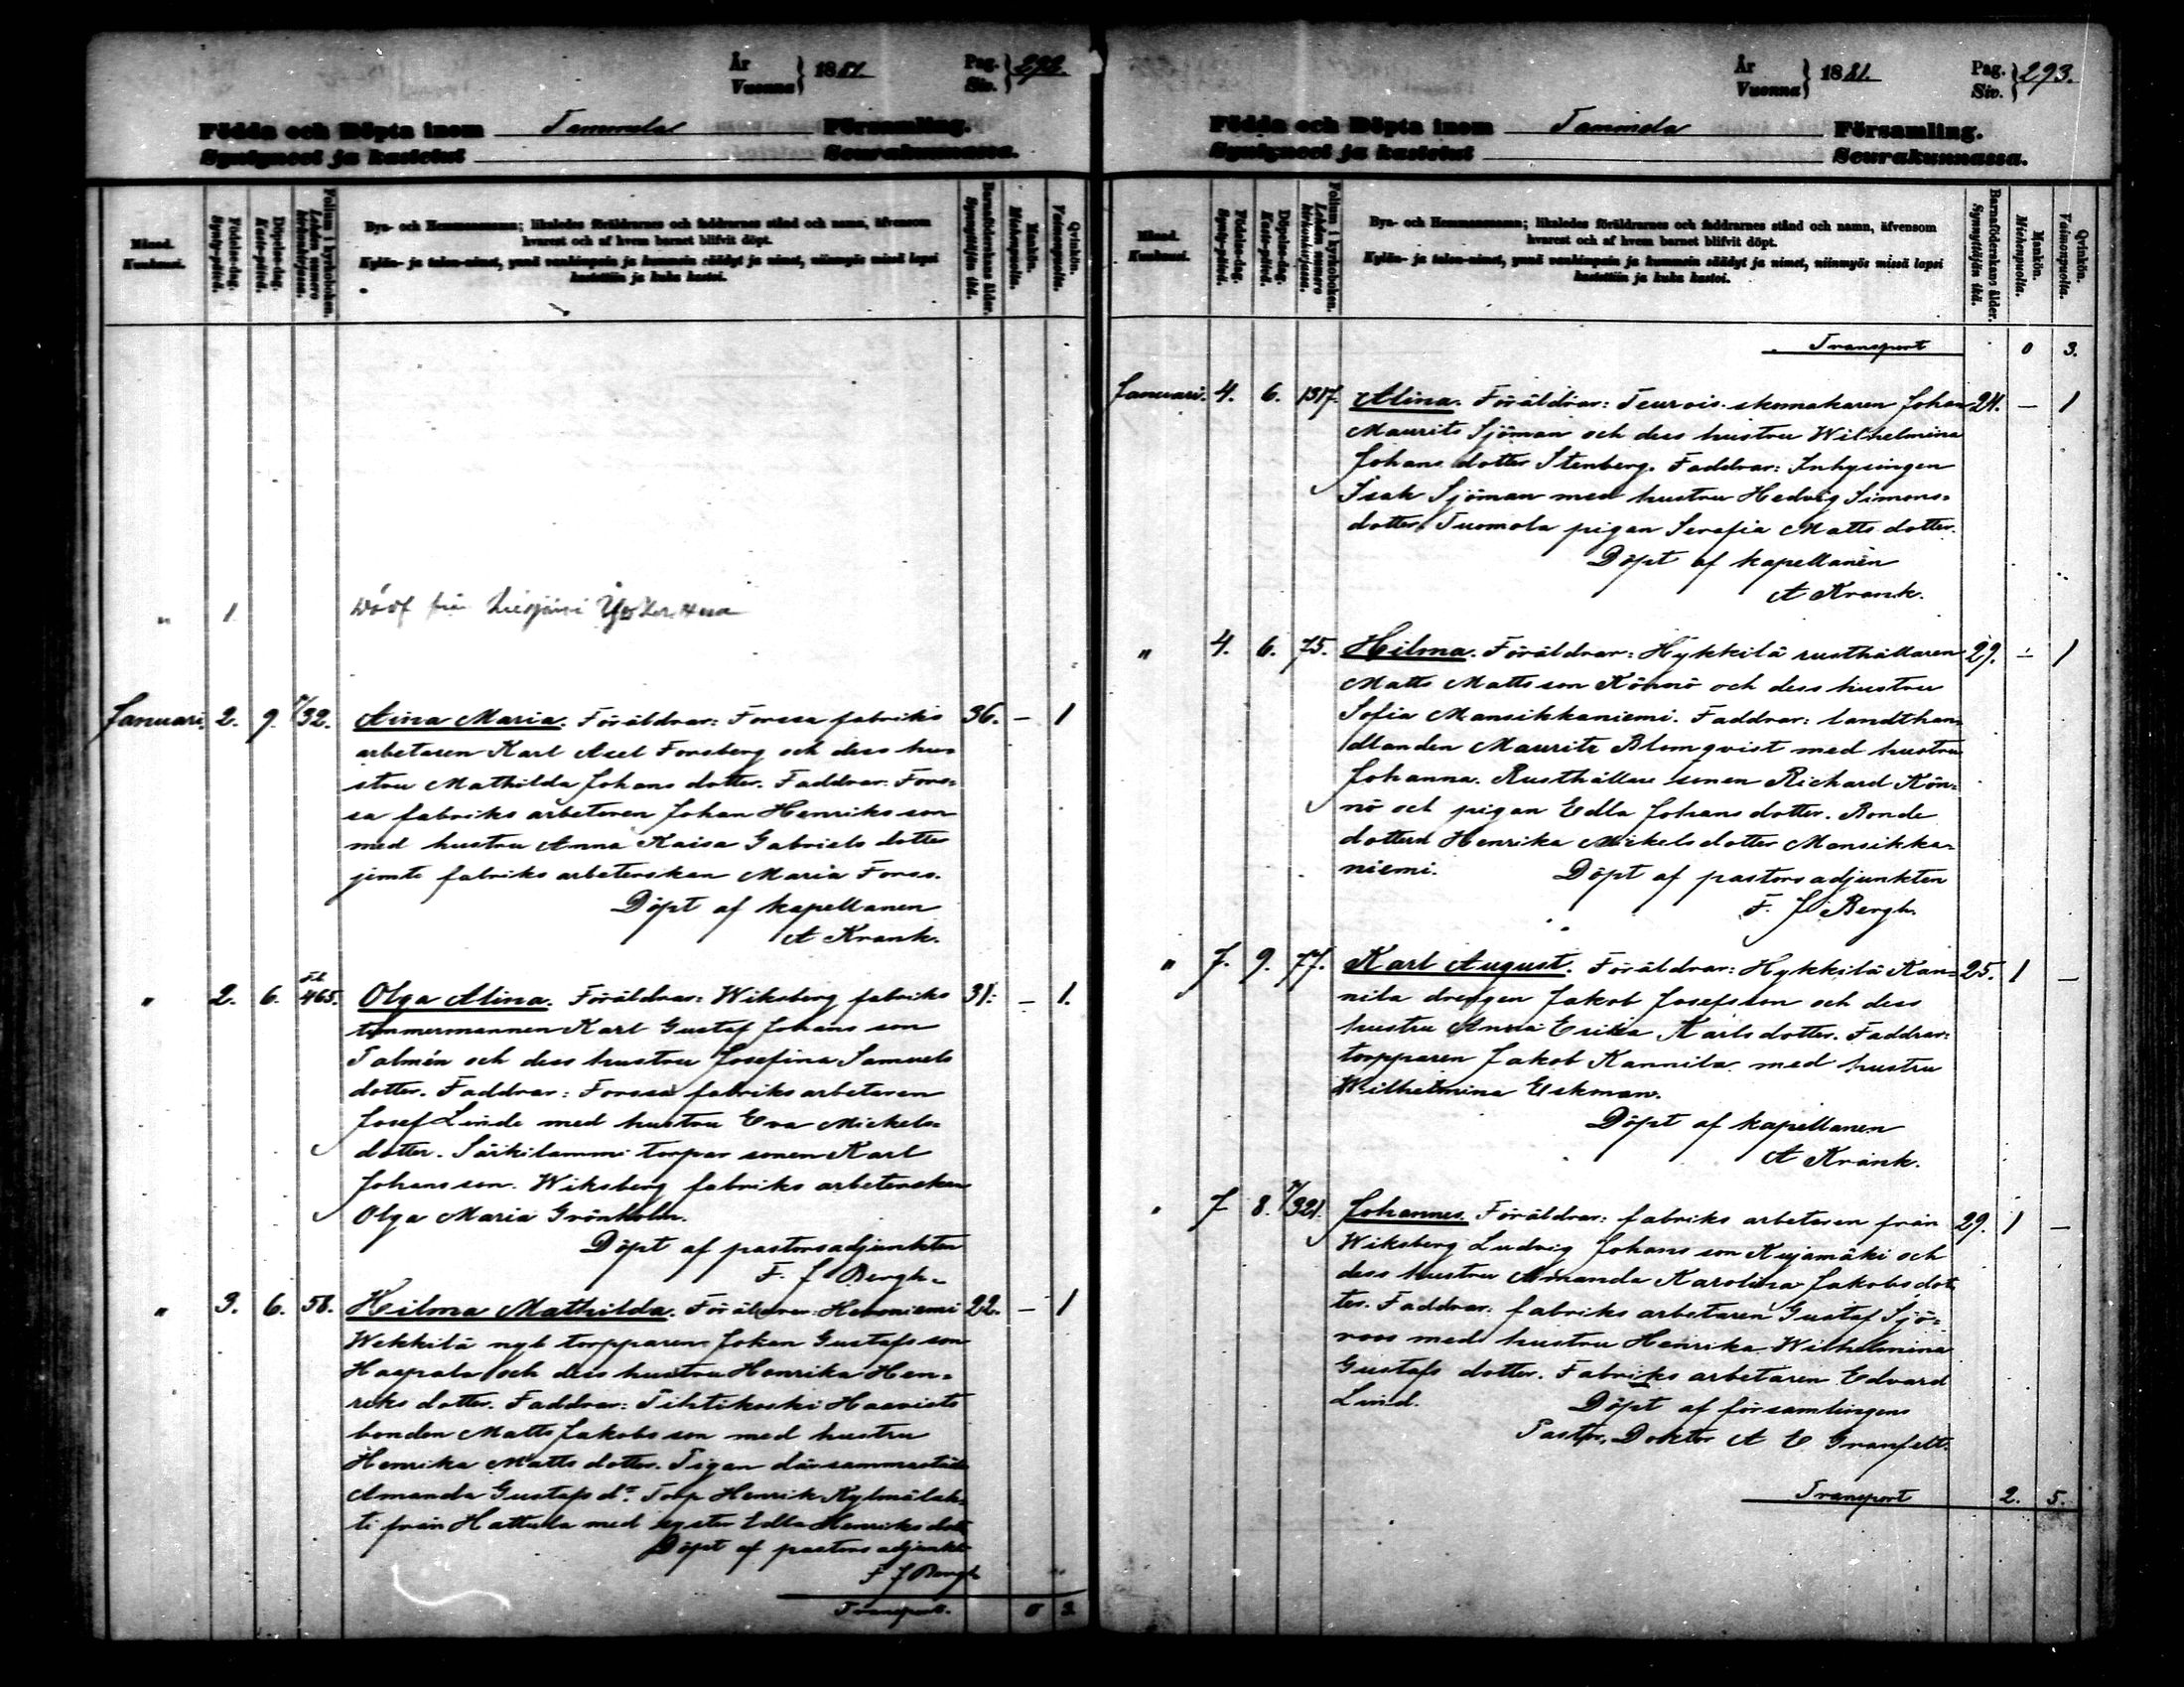 År
Vuonna } 1881.
Pag.
Siv. } 292.
Födda och Döpta inom Tammela Församling.
Syntyneet ja kastetut Seurakunnassa.
Månad.
Kuukausi.
Födelse-dag.
Synty-päivä.
Döpelse-dag.
Kaste-päivä.
Folium i kyrkoboken.
Lehden numero
kirkonkirjassa.
Bya- och Hemmansnamn; likaledes föräldrarnes och faddrarnes stånd och namn, äfvensom
hvarest och af hvem barnet blifvit döpt.
Kylän- ja talon-nimet, ynnä vanhimpain ja kummein säädyt ja nimet, niinmyös missä lapsi
kastettiin ja kuka kastoi.
Barnaföderskans ålder.
Synnyttäjän ikä.
Mankön.
Miehenpuolia.
Qvinkön.
Vaimonpuolia.
" 1
Januari. 2. 9. 1/32. Aina Maria. Föräldrar: Forssa fabriks 36. – 1
arbetaren Karl Axel Forsberg och dess hu-
stru Mathilda Johansdotter. Faddrar: Fors-
sa fabriks arbetaren Johan Henriksson
med hustru Anna Kaisa Gabrielsdotter
jemte fabriks arbeterskan Maria Forss.
Döpt af kapellanen
A Krank.
" 2. 6. 465. Olga Alina. Föräldrar: Wiksberg fabriks 31. – 1.
timmermannen Karl Gustaf Johansson
Palmén och dess hustru Josefina Samuels
dotter. Faddrar: Forssa fabriksarbetaren
Josef Linde med hustru Eva Mickels-
dotter. Särkilammi torpar sonen Karl
Johansson. Wiksberg fabriks arbeterskan
Olga Maria Grönholm.
Döpt af pastorsadjunkten
F. J Bergh.
" 3. 6. 58. Hilma Mathilda. Föräldrar: Hevoniemi 22. – 1
Wekkilä nyb torpparen Johan Gustafsson
Haapala och dess hustru Henrika Hen-
riksdotter. Faddrar: Pihtikoski Haavisto
bonden Matts Jakobsson med hustru
Henrika Mattsdotter. Pigan därsammastäds
Amanda Gustafs dr. Torp Henrik Kylmälah-
ti från Hattula med syster Edla Henriksdott
Döpt af pastorsadjunkt
F J Bergh
Transport. 0 3.
År
Vuonna } 1881.
Pag.
Siv. } 293.
Födda och Döpta inom Tammela Församling.
Syntyneet ja kastetut Seurakunnassa.
Månad.
Kuukausi.
Födelse-dag.
Synty-päivä.
Döpelse-dag.
Kaste-päivä.
Folium i kyrkoboken.
Lehden numero
kirkonkirjassa.
Bya- och Hemmansnamn; likaledes föräldrarnes och faddrarnes stånd och namn, äfvensom
hvarest och af hvem barnet blifvit döpt.
Kylän- ja talon-nimet, ynnä vanhimpain ja kummein säädyt ja nimet, niinmyös missä lapsi
kastettiin ja kuka kastoi.
Barnaföderskans ålder.
Synnyttäjän ikä.
Mankön.
Miehenpuolia.
Qvinkön.
Vaimonpuolia.
Transport 0 3.
Januari. 4. 6. 1317. Alina. Föräldrar: Teurois skomakaren Johan 24. – 1
Maurits Sjöman och dess hustru Wilhelmina
Johansdotter Stenberg. Faddrar: Inhysingen
Isak Sjöman med hustru Hedvig Simons-
dotter, Tuomola pigan Serafia Mattsdotter.
Döpt af kapellanen
A Krank.
" 4. 6. 75. Hilma. Föräldrar: Hykkilä rusthållaren 29. – 1
Matts Mattsson Könnö och dess hustru
Sofia Mansikkaniemi. Faddrar: landthan-
dlanden Mauritz Blomqvist med hustru
Johanna. Rusthållare sonen Richard Kön-
nö och pigan Edla Johansdotter. Bonde
dottern Henrika Mickelsdotter Mansikka-
niemi. Döpt af pastorsadjunkten
F. J Bergh.
" 7. 9. 77. Karl August. Föräldrar: Hykkilä Kan- 25. 1 –
nila drengen Jakob Josefsson och dess
hustru Anna Erika Karlsdotter. Faddrar:
torpparen Jakob Kannila med hustru
Wilhelmina Eskman.
Döpt af kapellanen
A Krank.
" 7 8. 1/321. Johannes. Föräldrar: fabriks arbetaren från 29. 1 –
Wiksberg Ludvig Johansson Kujamäki och
dess hustru Amanda Karolina Jakobsdot-
ter. Faddrar: fabriks arbetaren Gustaf Sjö-
roos med hustru Henrika Wilhelmina
Gustafs dotter. Fabriks arbetaren Edvard
Lind. Döpt af församlingens
Pastor, Doktor A E Granfelt.
Transport 2. 5.